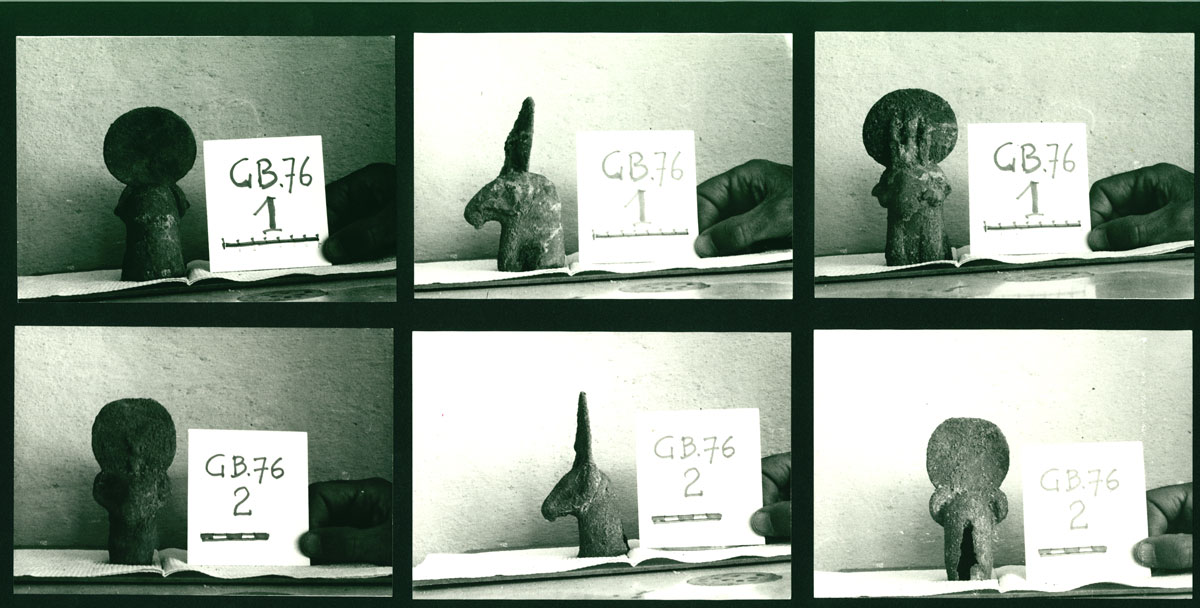 GB.76
1
GB.76
1
GB.76
1
GB.76
2
GB.76
2
GB.76
2